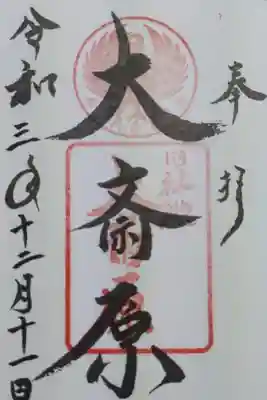 奉拝
大斎原
令和三年十二月十一日